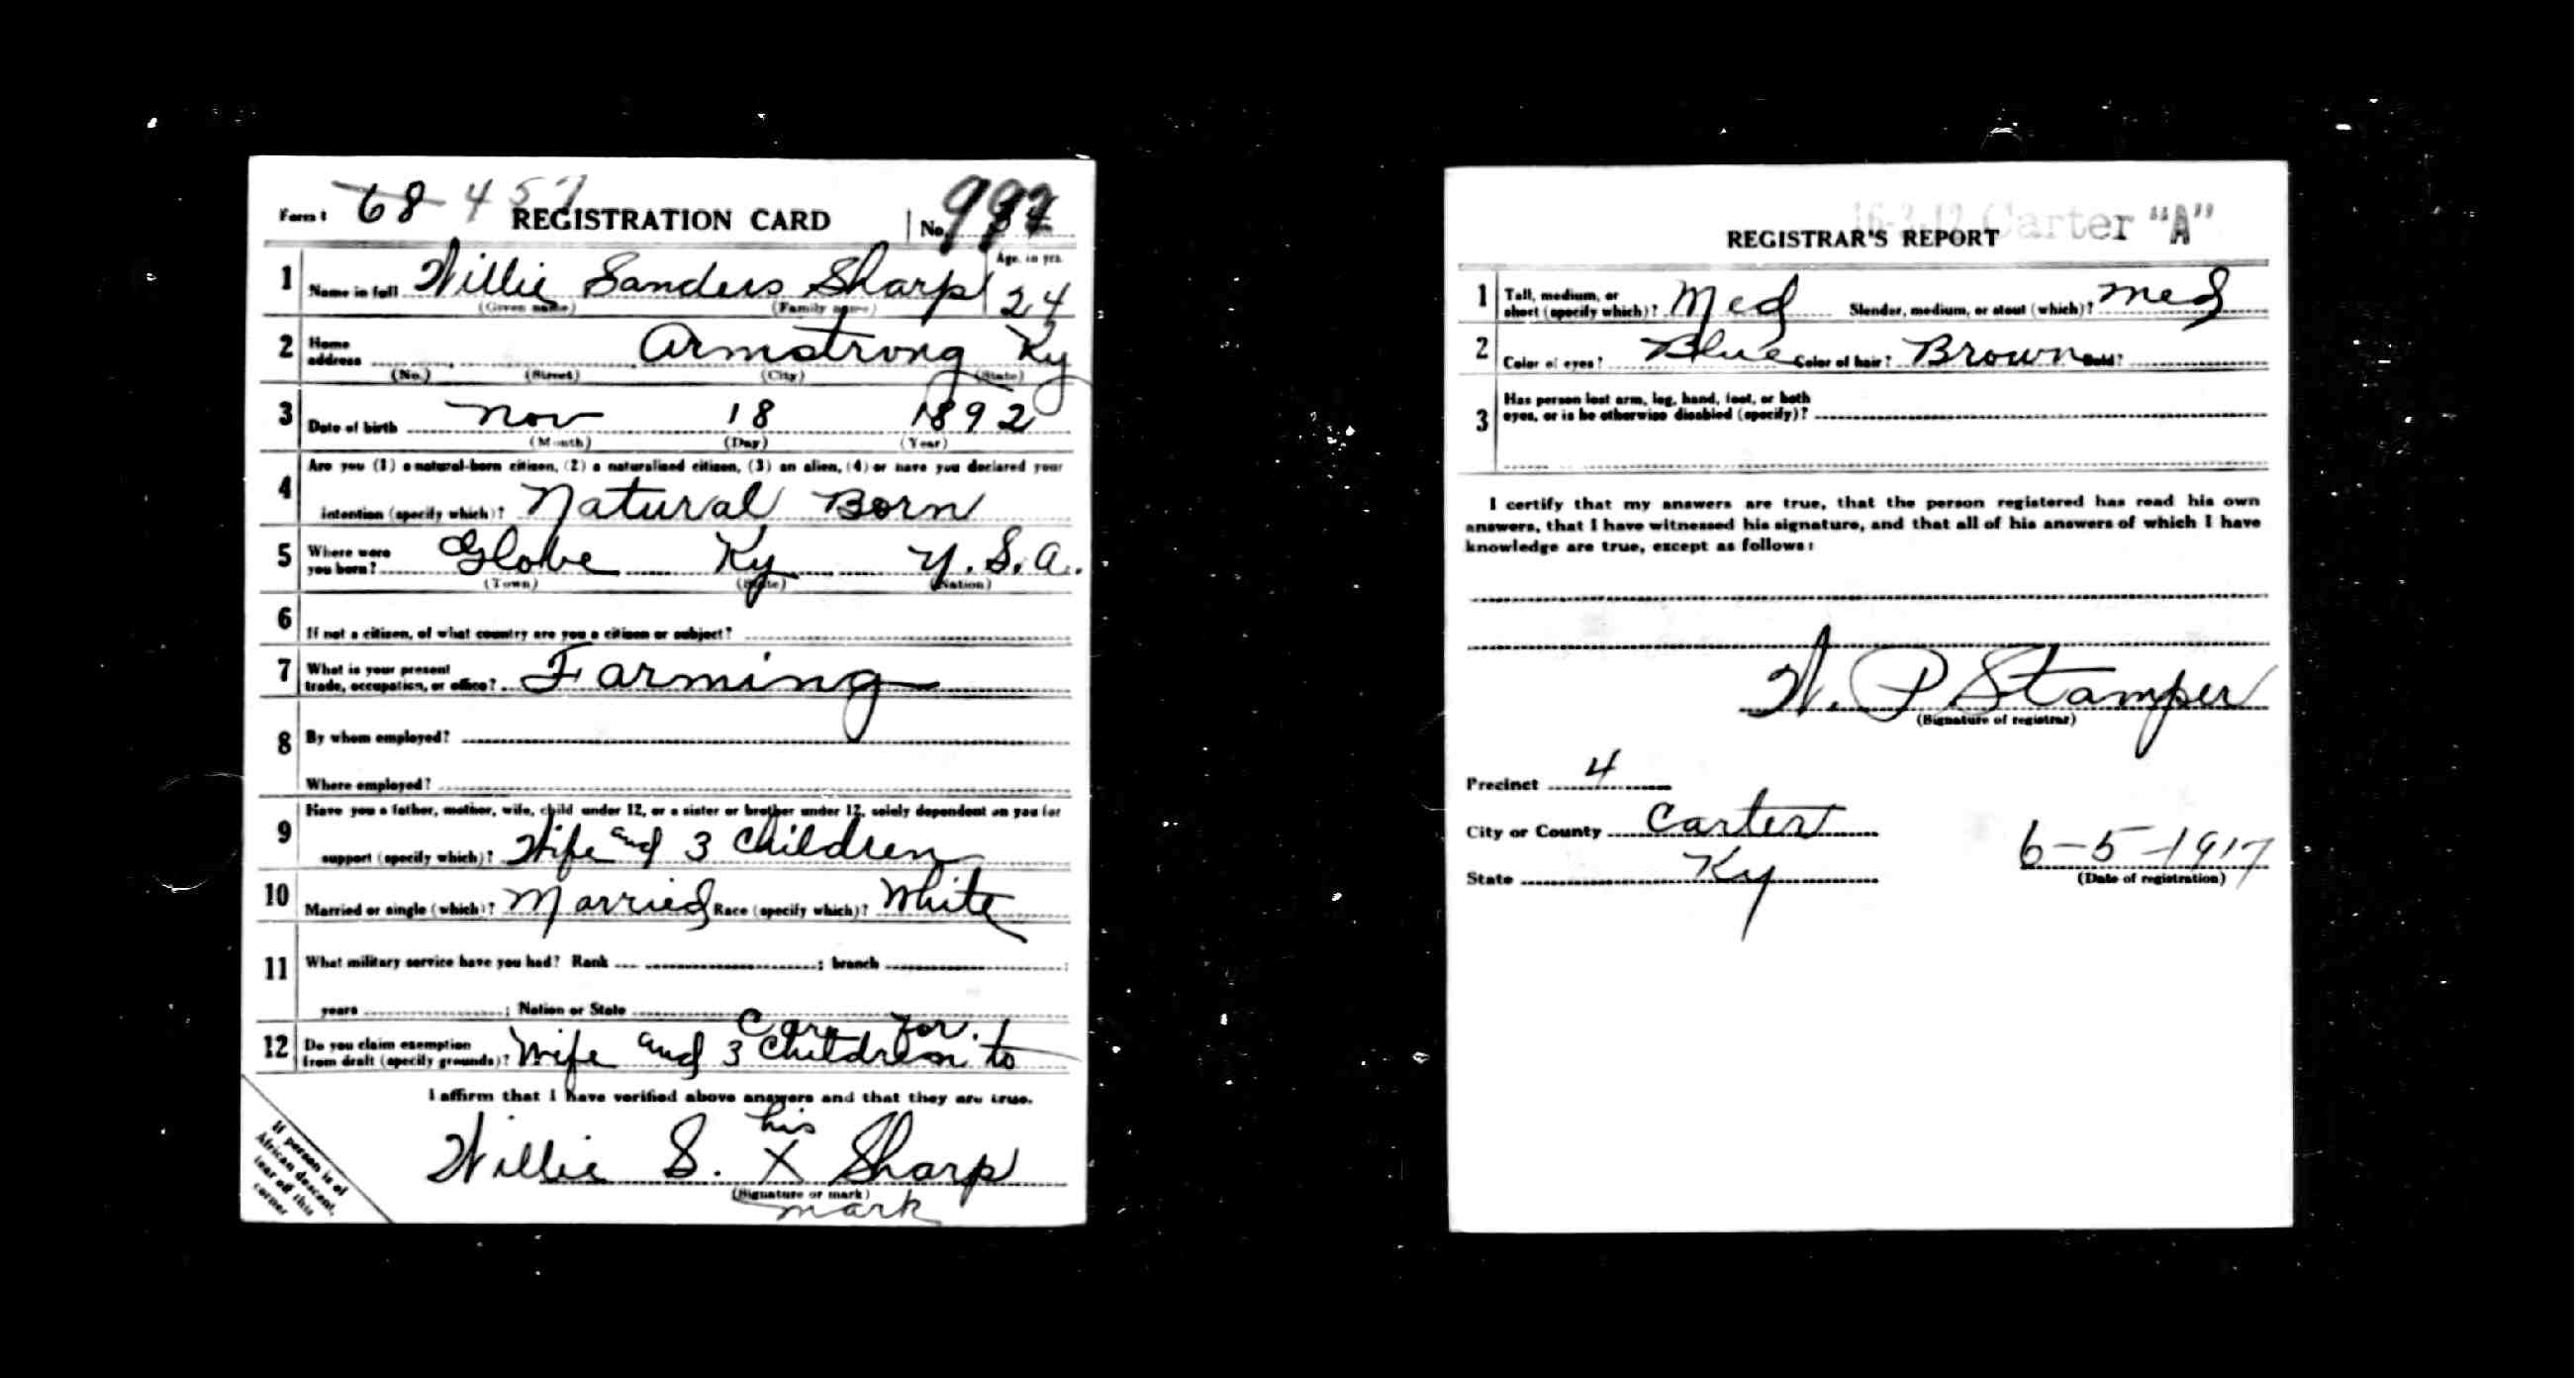 Form 1 68 457 REGISTRATION CARD No.
Age, in yrs.
1 Name in full Willie Sanders Sharp 24
(Given name) (Family name)
2 Home address Armstrong Ky
(No.) (Street) (City) (State)
3 Date of birth Nov 18 1892
(Month) (Day) (Year)
Are you (1) a natural-born citizen, (2) a naturalized citizen, (3) an alien, (4) or have you declared your
4 intention (specify which)? Natural Born
5 Where were you born? Globe Ky U.S.A.
(Town) (State) (Nation)
6 If not a citizen, of what country are you a citizen or subject?
7 What is your present
trade, occupation, or office? Farming
8 By whom employed?
Where employed?
Have you a father, mother, wife, child under 12, or a sister or brother under 12, solely dependent on you for
9 support (specify which)? Wife and 3 Children
10 Married or single (which)? Married Race (specify which)? White
11 What military service have you had? Rank ; branch ;
years ; Nation or State
care for.
12 Do you claim exemption
from draft (specify grounds)? Wife and 3 Children to
I affirm that I have verified above answers and that they are true.
his
Willie S. X Sharp
(Signature or mark)
mark
If person is of
African descent,
tear off this
corner
16-3-12 Carter "A"
REGISTRAR'S REPORT
1 Tall, medium, or
short (specify which)? Med Slender, medium, or stout (which)? Med
2 Color of eyes? Blue Color of hair? Brown Bald?
Has person lost arm, leg, hand, foot, or both
3 eyes, or is he otherwise disabled (specify)?
I certify that my answers are true, that the person registered has read his own
answers, that I have witnessed his signature, and that all of his answers of which I have
knowledge are true, except as follows:
W. P. Stamper
(Signature of registrar)
Precinct 4
City or County Carter
6-5-1917
State Ky
(Date of registration)